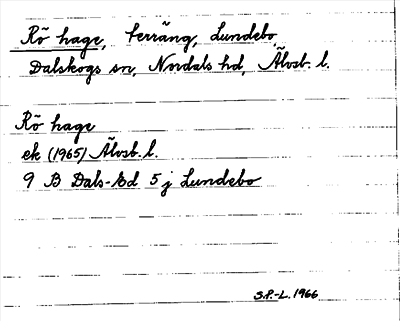 Rö hage, terräng, Lundebo
Dalskogs sn, Nordals hd, Älvsb. l.
Rö hage
ek (1965) Älvsb. l.
9 B Dals-Ed 5 j Lundebo
S.P.-L. 1966